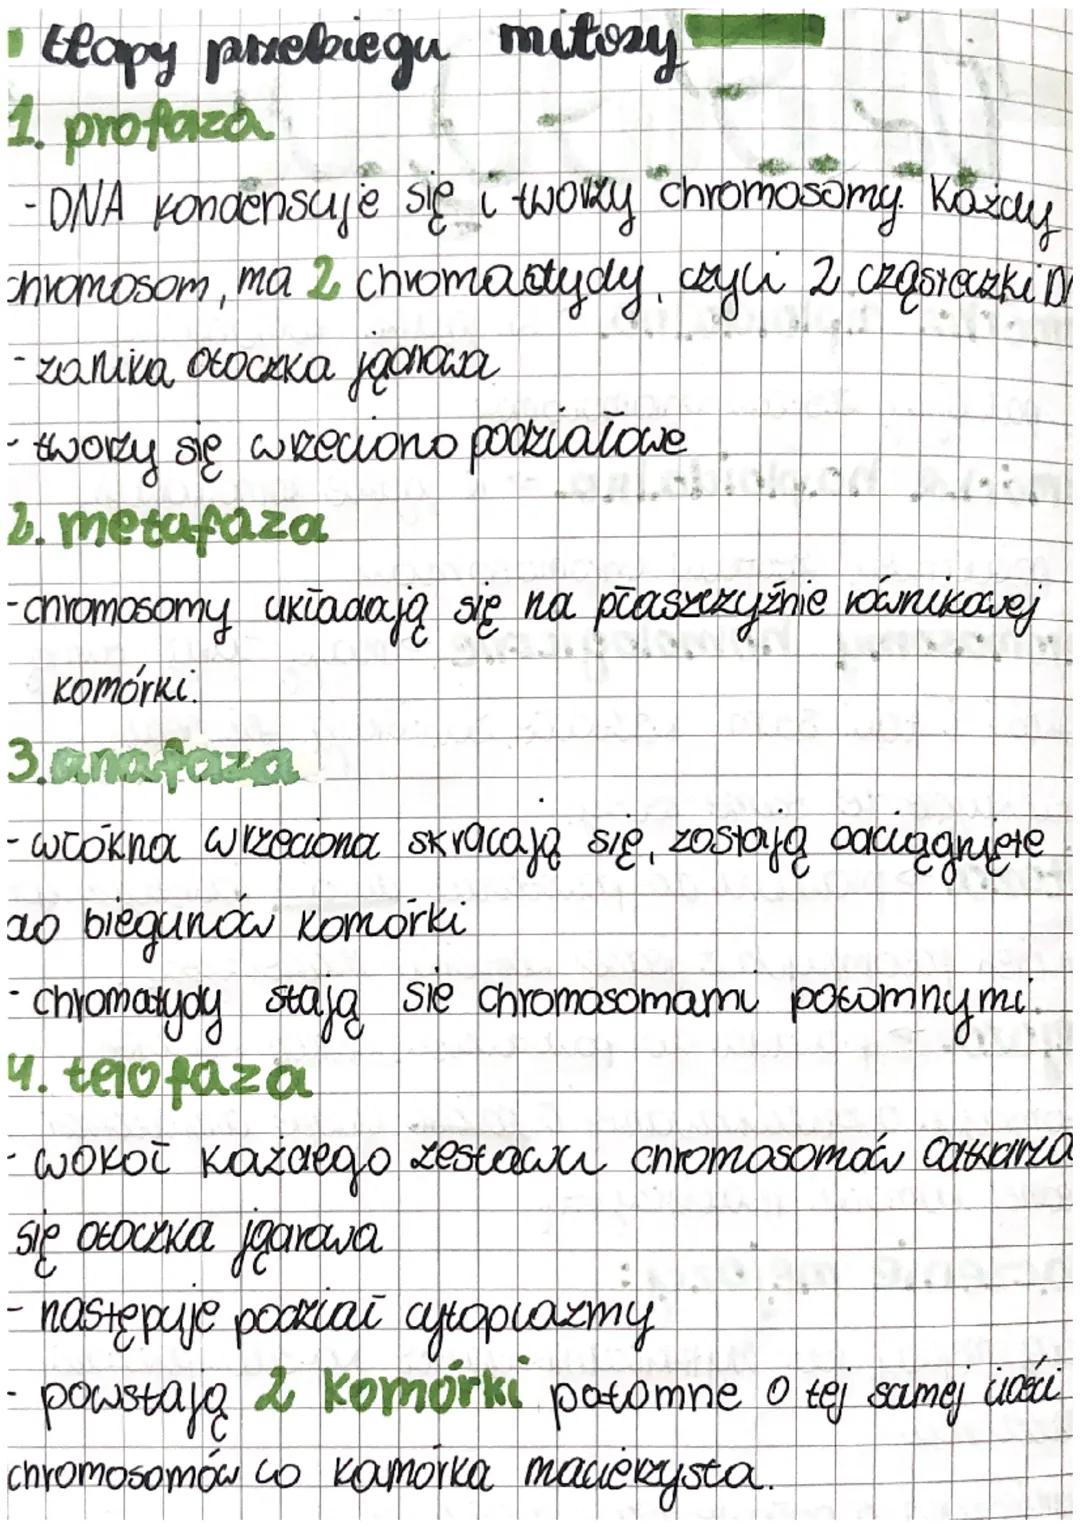 Etapy przebiegu mitozy
1. profaza
- DNA kondensuje się i tworzy chromosomy. Każdy
chromosom, ma 2 chromatydy, czyli 2 cząsteczki
- zanika otoczka jądrowa
- tworzy się wrzeciono podziałowe
2. metafaza
- chromosomy układają się na płaszczyźnie równikowej
komórki.
3. anafaza
- włókna wrzeciona skracają się, zostają odciągnięte
do biegunów komórki
- chromatydy stają sie chromosomami potomnymi.
4. telofaza
- wokół każdego zestawu chromosomów odtwarza
się otoczka jądrowa
- następuje podział cytoplazmy
- powstają 2 komórki potomne o tej samej ilości
chromosomów co komórka macierzysta.